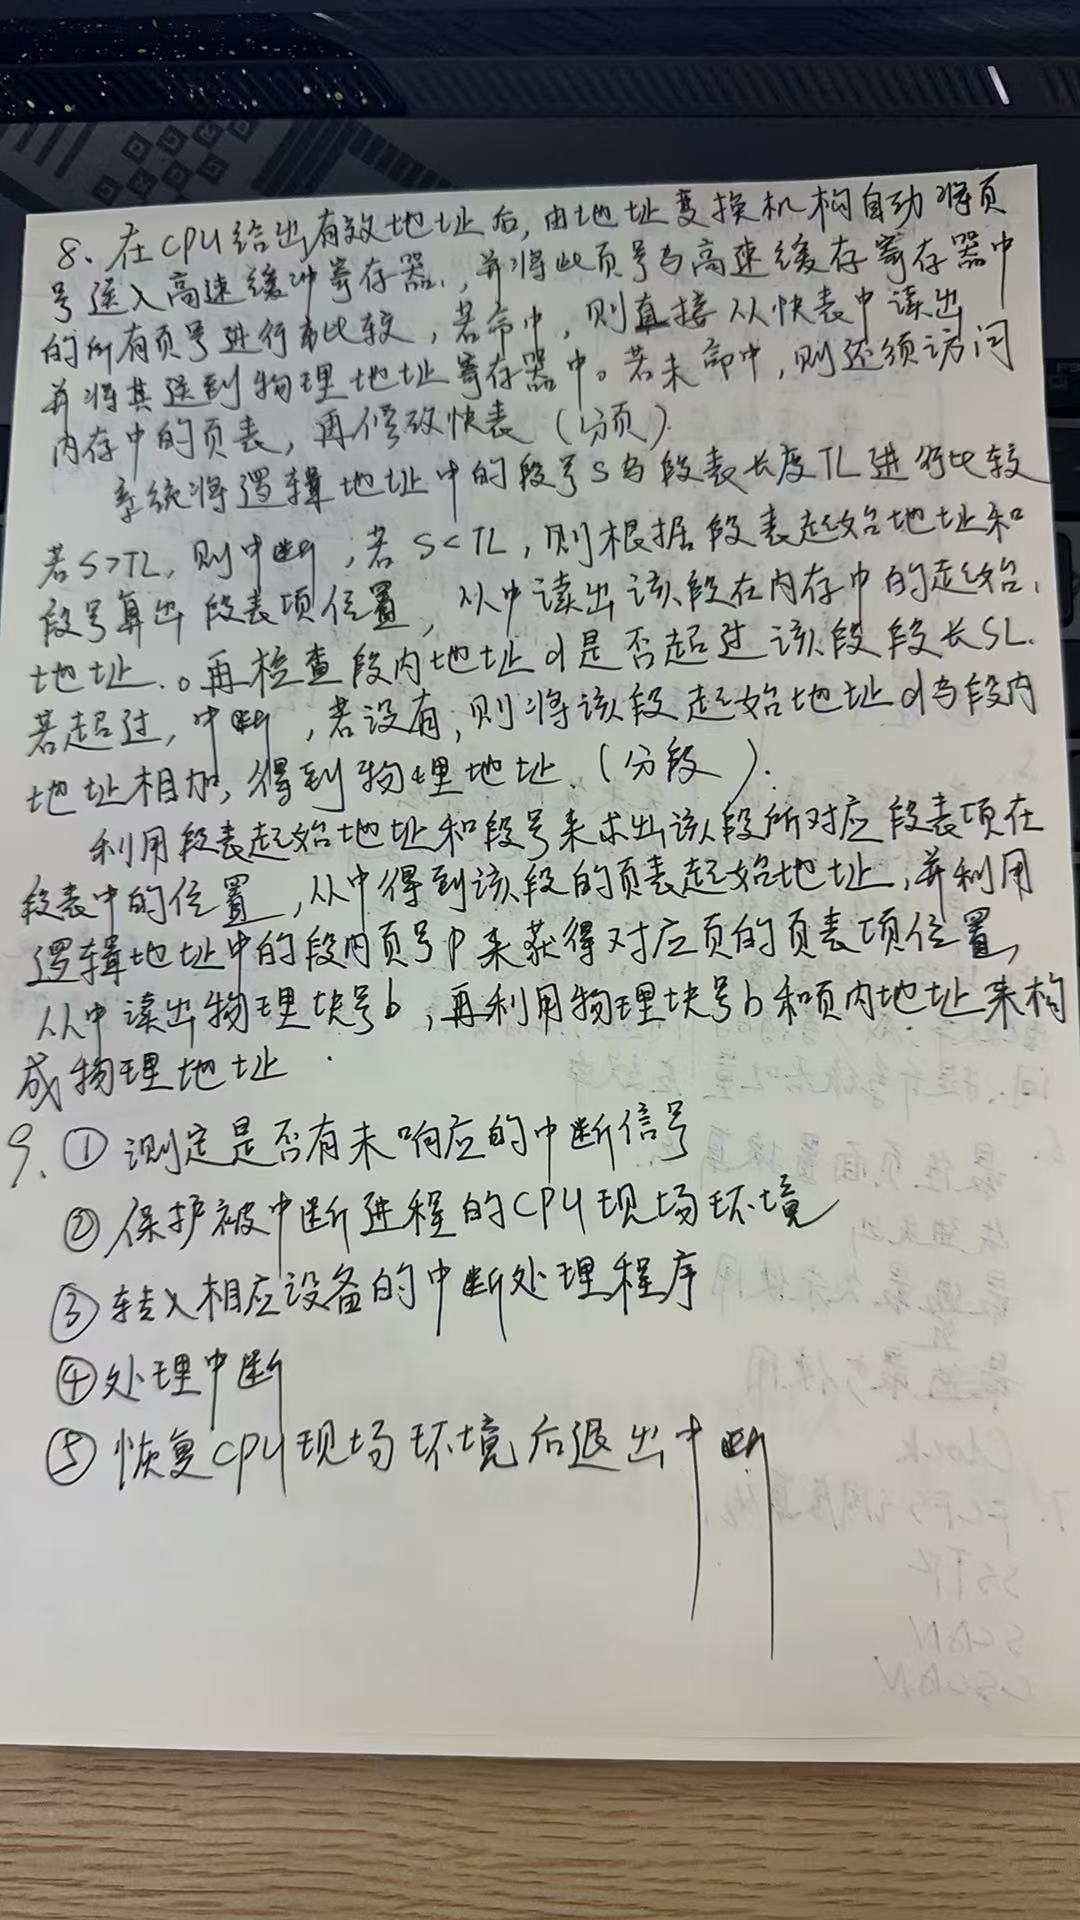 8、在CPU给出有效地址后,由地址变换机构自动将页
号送入高速缓冲寄存器,并将此页号与高速缓存寄存器中
的所有页号进行比较,若命中,则直接从快表中读出
并将其送到物理地址寄存器中。若未命中,则还须访问
内存中的页表,再修改快表(分页).
系统将逻辑地址中的段号S与段表长度TL进行比较
若S>TL,则中断,若S<TL,则根据段表起始地址和
段号算出段表项位置,从中读出该段在内存中的起始
地址.。再检查段内地址d是否超过该段段长SL.
若超过,中断,若没有,则将该段起始地址d与段内
地址相加,得到物理地址.(分段).
利用段表起始地址和段号来求出该段所对应段表项在
段表中的位置,从中得到该段的页表起始地址,并利用
逻辑地址中的段内页号P来获得对应页的页表项位置,
从中读出物理块号b,再利用物理块号b和页内地址来构
成物理地址.
9.①测定是否有未响应的中断信号
②保护被中断进程的CPU现场环境
③转入相应设备的中断处理程序
④处理中断
⑤恢复CPU现场环境后退出中断